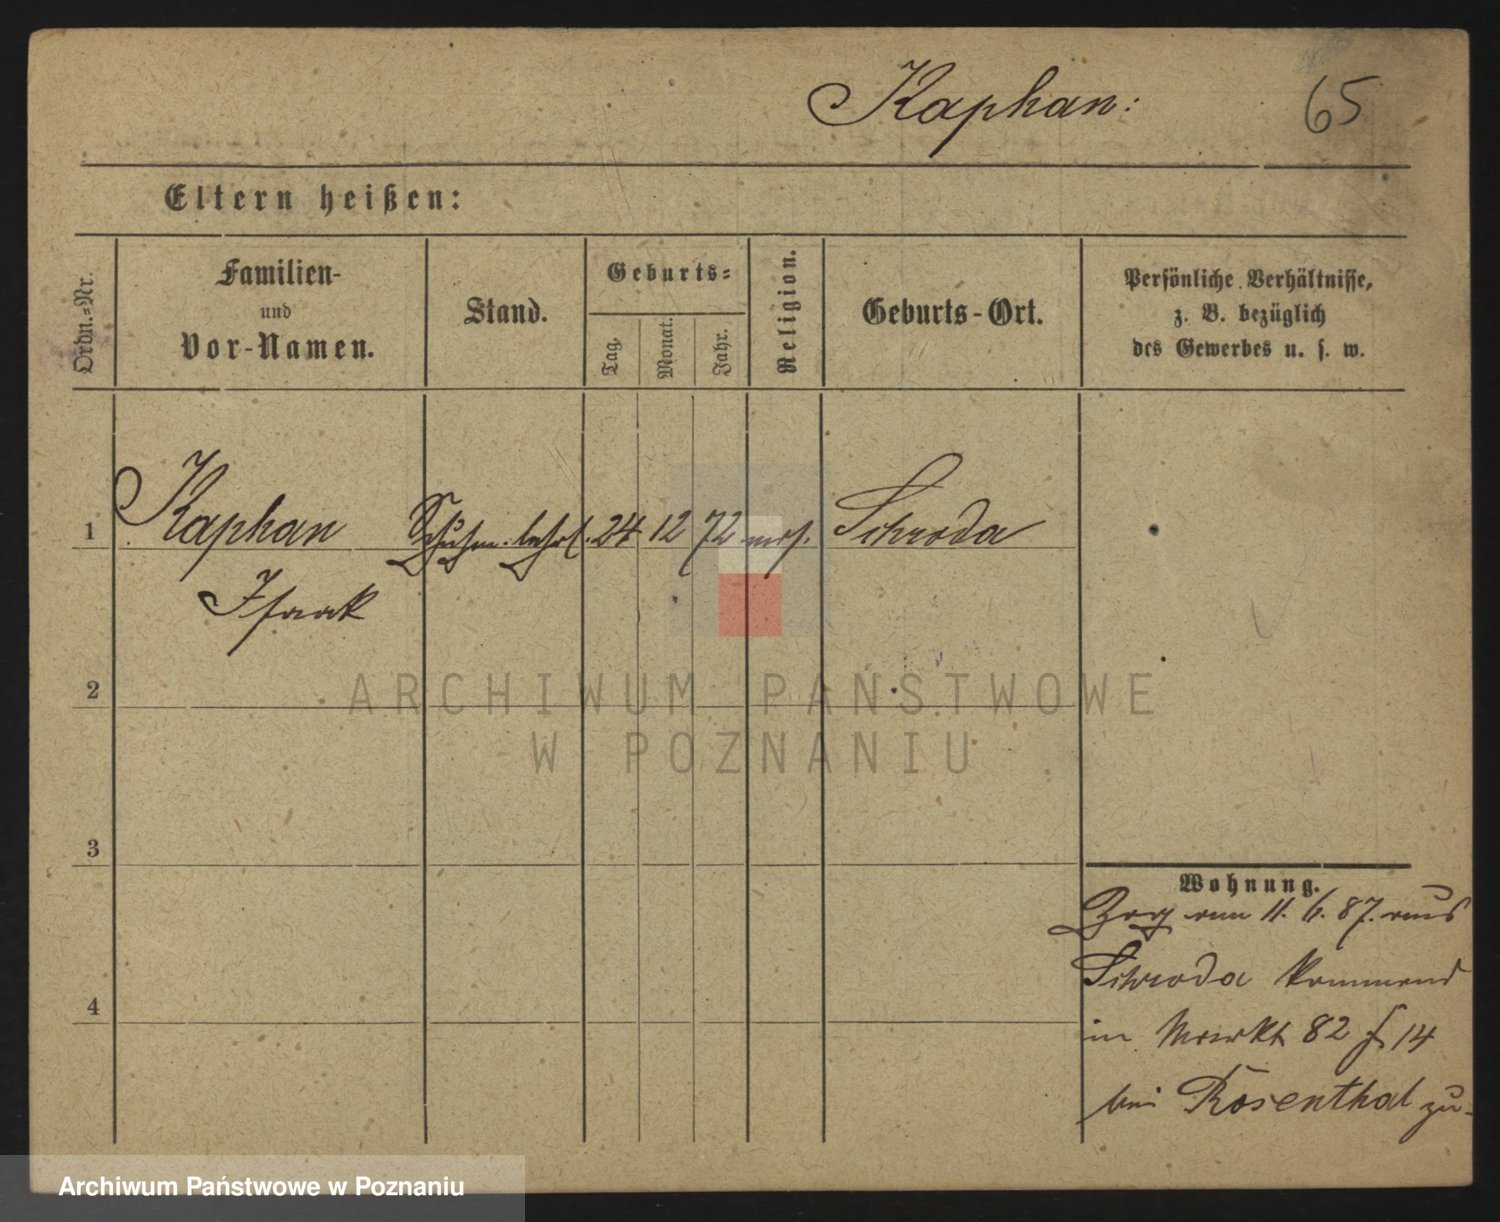 Kaphan:
65
Eltern heißen:
Ordn.-Nr.
Familien-
und
Vor-Namen.
Stand.
Geburts-
Tag.
Monat.
Jahr.
Religion.
Geburts-Ort.
Persönliche Verhältnisse,
z. B. bezüglich
des Gewerbes u. s. w.
1 Kaphan Schuhm. lehrl. 24 12 72 mos. Schroda
Isaak
2
3
4
Wohnung.
Zog am 11. 6. 87. aus
Schroda kommend
in Markt 82 14
bei Rosenthal zu-
ARCHIWUM PAŃSTWOWE
W POZNANIU
Archiwum Państwowe w Poznaniu